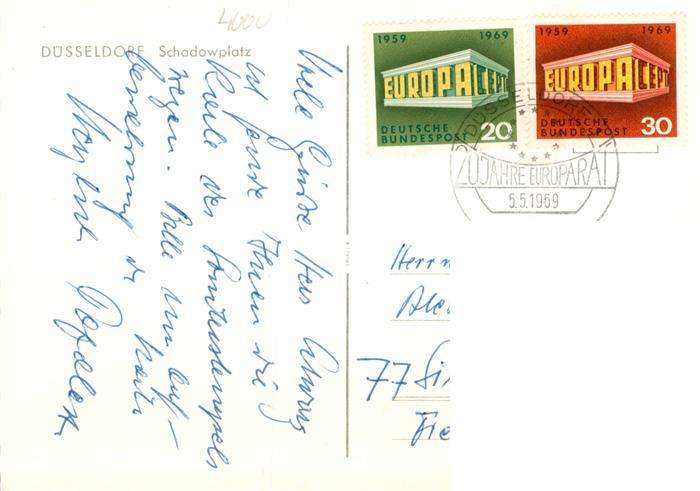 4000
DÜSSELDORF Schadowplatz
Viele Grüße Herr
ist sende Ihnen die
Karte des Sonderstempels
wegen. Bitte um Auf-
bewahrung der Karte
1959 1969
EUROPA CEPT
DEUTSCHE
BUNDESPOST 20
1959 1969
EUROPA CEPT
DEUTSCHE
BUNDESPOST 30
DÜSSELDORF
20 JAHRE EUROPARAT
5.5.1969
Herrn
77 Si